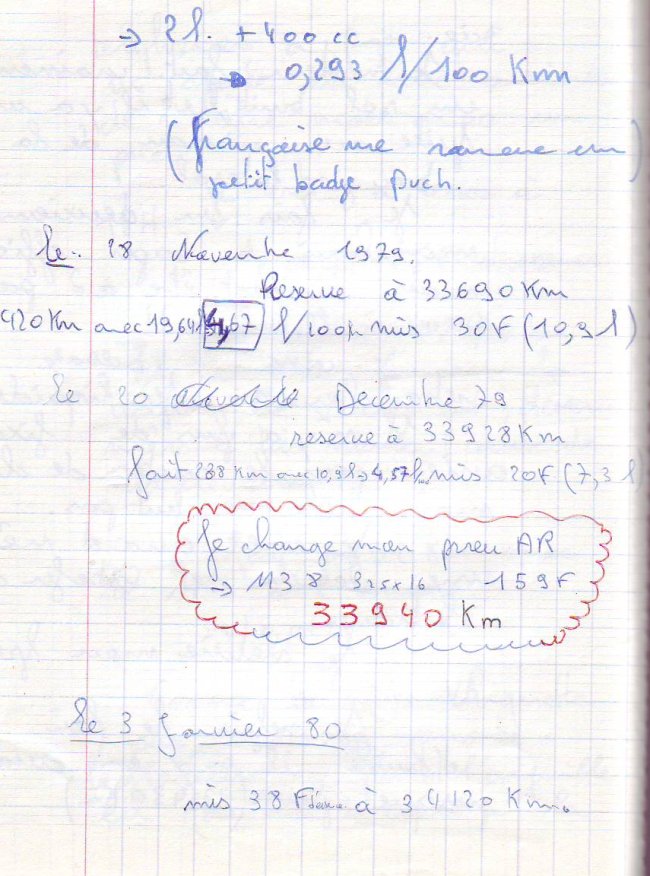 → 2 l. + 400 cc
→ 0,293 l/100 Km
(Françoise me ramene un
petit badge Puch.)
le 18 Novembre 1979.
Reserve à 33690 Km
420 Km avec 19,64 l 4,67 l/100 mis 30F (10,9 l)
le 20 Decembre 79
reserve à 33928 Km
fait 238 Km avec 10,9 l → 4,57 l mis 20F (7,3 l)
Je change mon pneu AR
→ M38 325 x 16 159F.
33940 Km
le 3 Janvier 80
mis 38 F à 34120 Km.